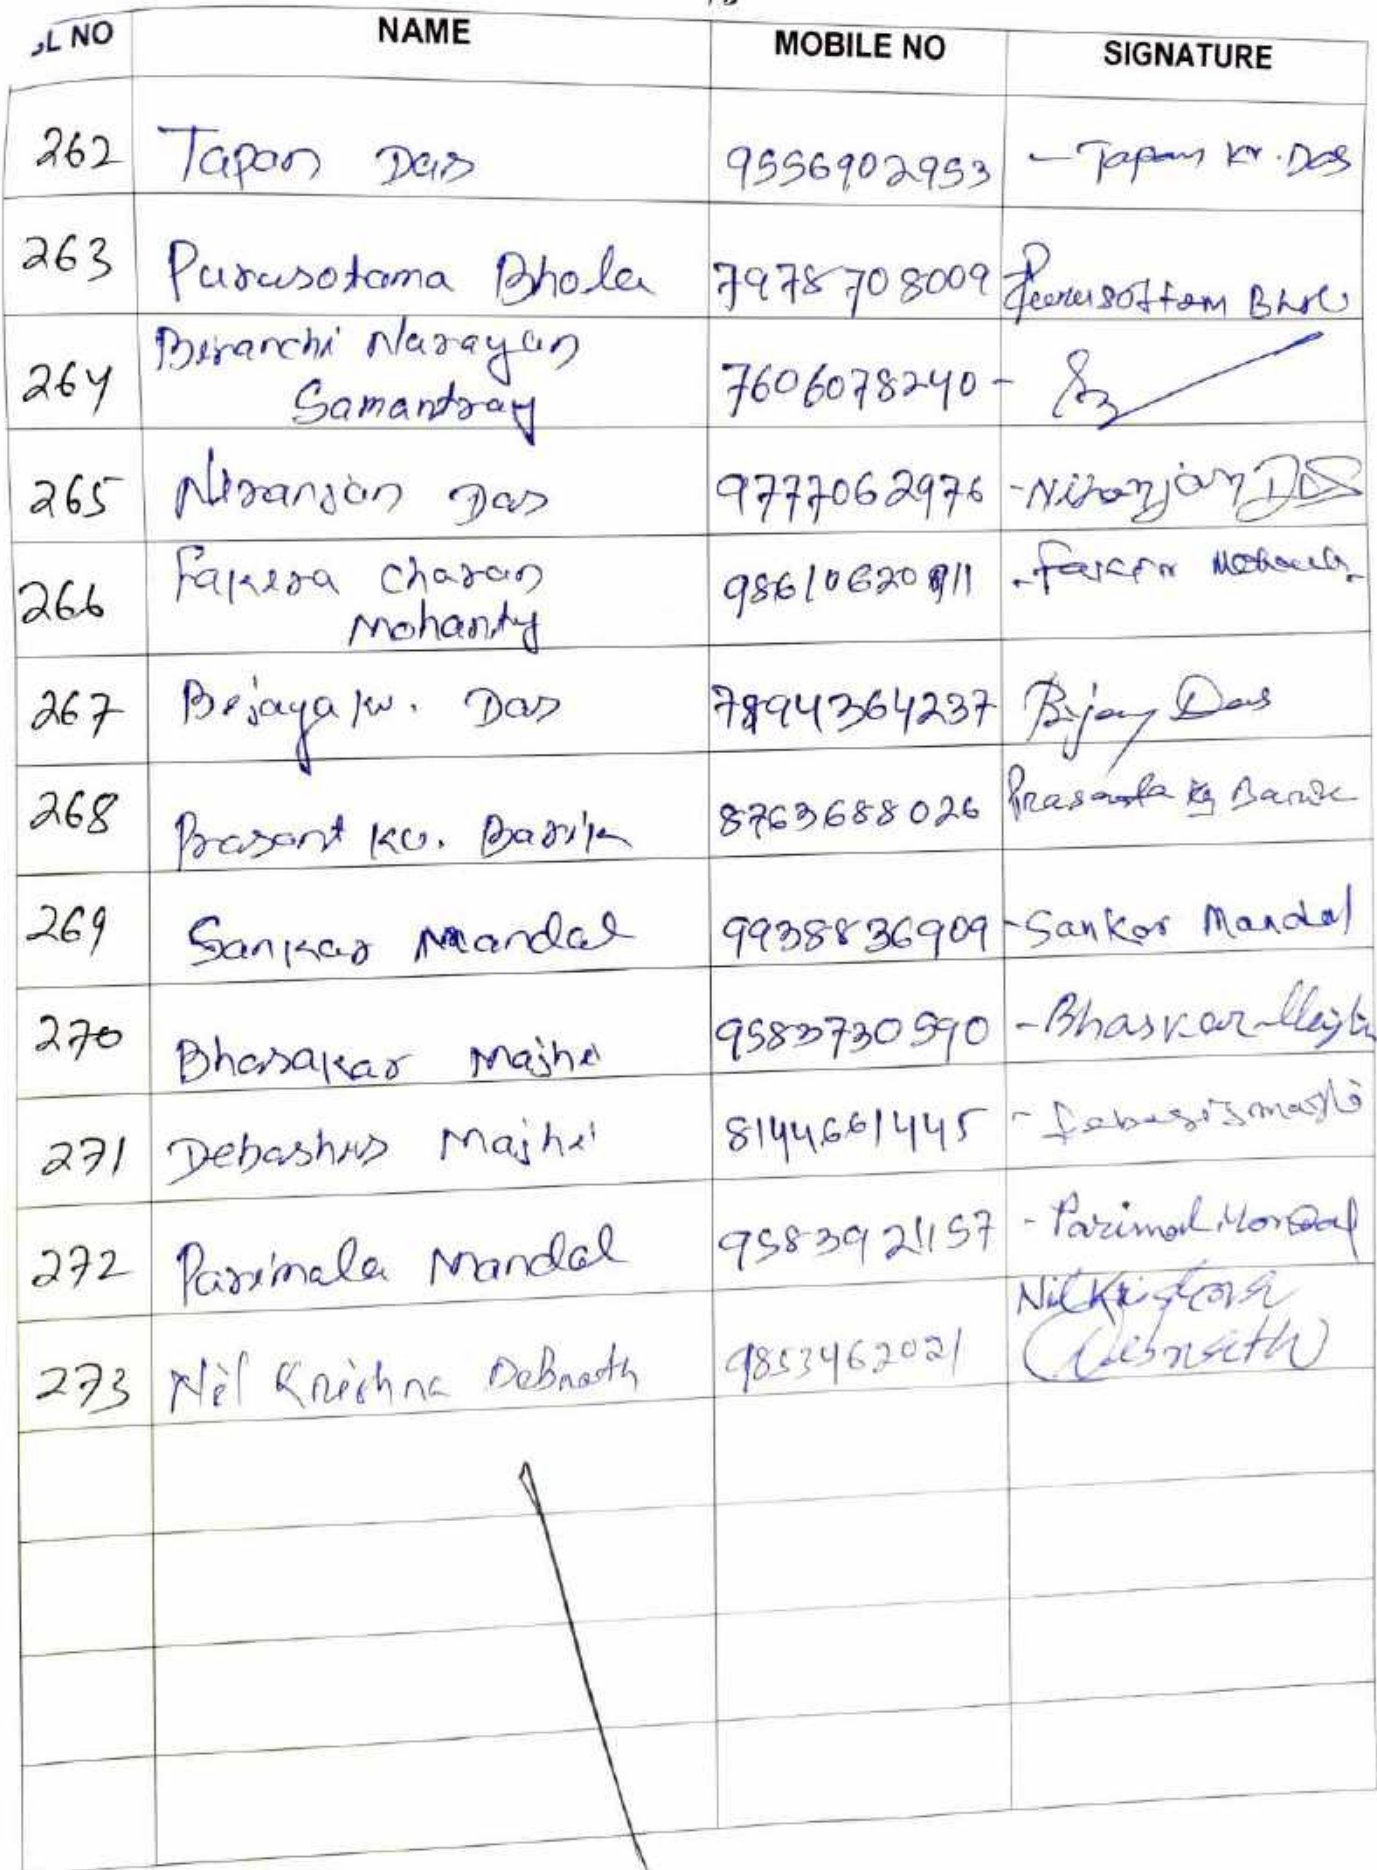 SL NO NAME MOBILE NO SIGNATURE
262 Tapan Das 9556902953 - Tapan Kr. Das
263 Purusotama Bhola 7978708009 Purusottam Bhol
Biranchi Narayan
264 Samantray 7606078240 -
265 Niranjan Das 9777062976 - Niranjan Das
Fakira Charan
266 Mohanty 9861062011 - Fakir
267 Bijaya kr. Das 7894364237 Bijay Das
268 Prasant Ku. Barik 8763688026 Prasanta Barik
269 Sankar Mandal 9938836909 - Sankar Mandal
270 Bhasakar Majhi 9583730590 - Bhaskar Majhi
271 Debashis Majhi 8144661445 - Debasis majhi
272 Parimala Mandal 9583921157 - Parimal Mondal
273 Nil Krishna Debnath 9853462021 Nil Krishna
Debnath